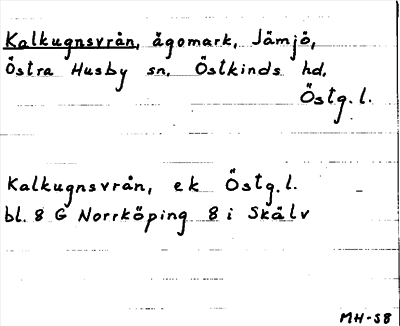 Kalkugnsvrån, ägomark, Jämjö,
Östra Husby sn. Östkinds hd.
Östg.l.
Kalkugnsvrån, ek Östg.l.
bl. 8 G Norrköping 8 i Skälv
MH-58